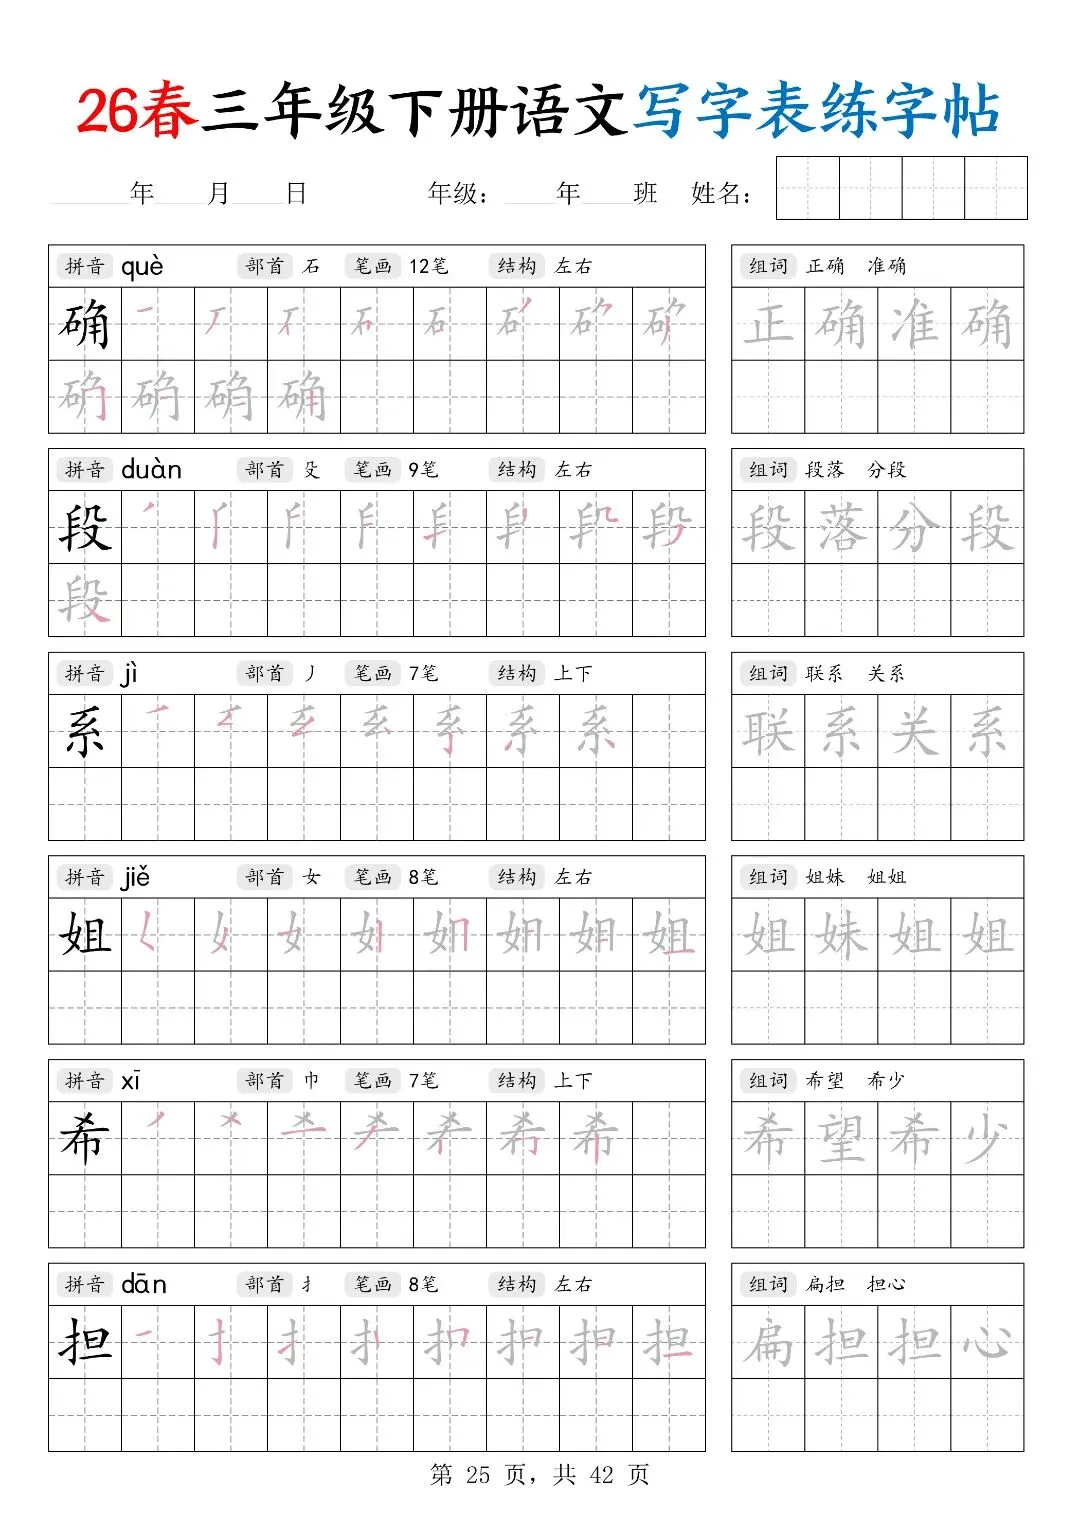 26春三年级下册语文写字表练字帖
年 月 日 年级: 年 班 姓名:
拼音 què 部首 石 笔画 12笔 结构 左右 组词 正确 准确
确 正确准确
拼音 duàn 部首 殳 笔画 9笔 结构 左右 组词 段落 分段
段 段落分段
拼音 jì 部首 丿 笔画 7笔 结构 上下 组词 联系 关系
系 联系关系
拼音 jiě 部首 女 笔画 8笔 结构 左右 组词 姐妹 姐姐
姐 姐妹姐姐
拼音 xī 部首 巾 笔画 7笔 结构 上下 组词 希望 希少
希 希望希少
拼音 dān 部首 扌 笔画 8笔 结构 左右 组词 扁担 担心
担 扁担担心
第 25 页, 共 42 页